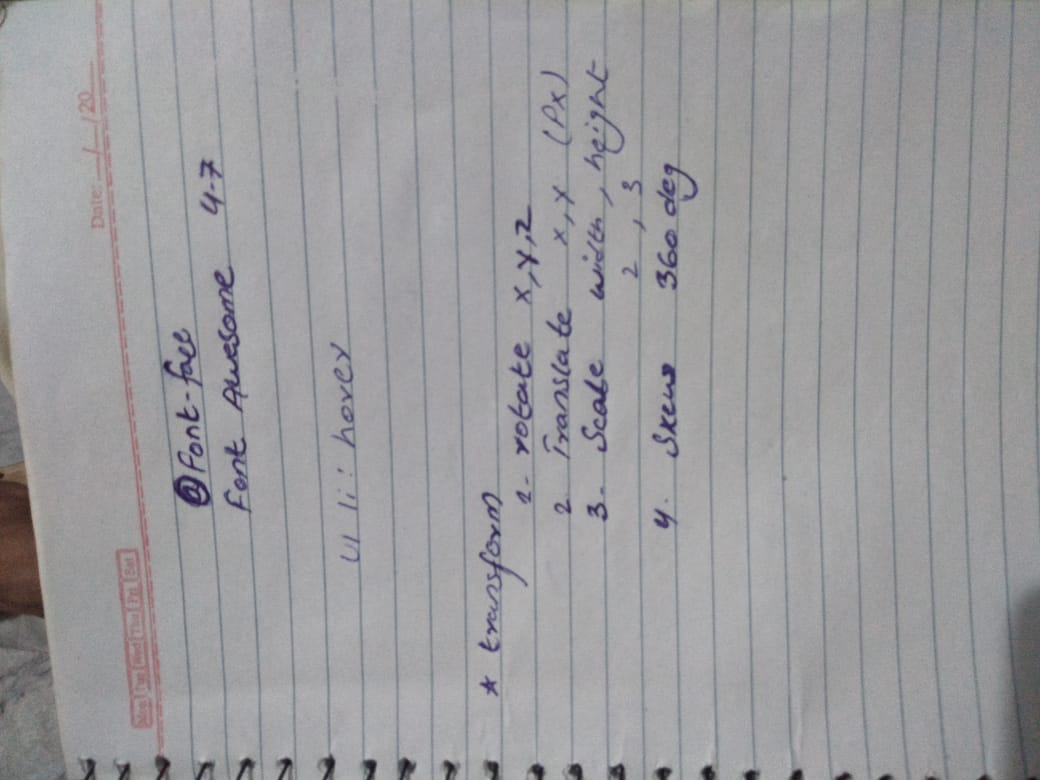 Mon Tue Wed Thu Fri Sat
Date: / /20
@font-face
Font Awesome 4.7
ul li : hover
* transform
1- rotate x,y,z
2 Translate x,y (Px)
3- Scale width, height
2 , 3
4. Skew 360 deg